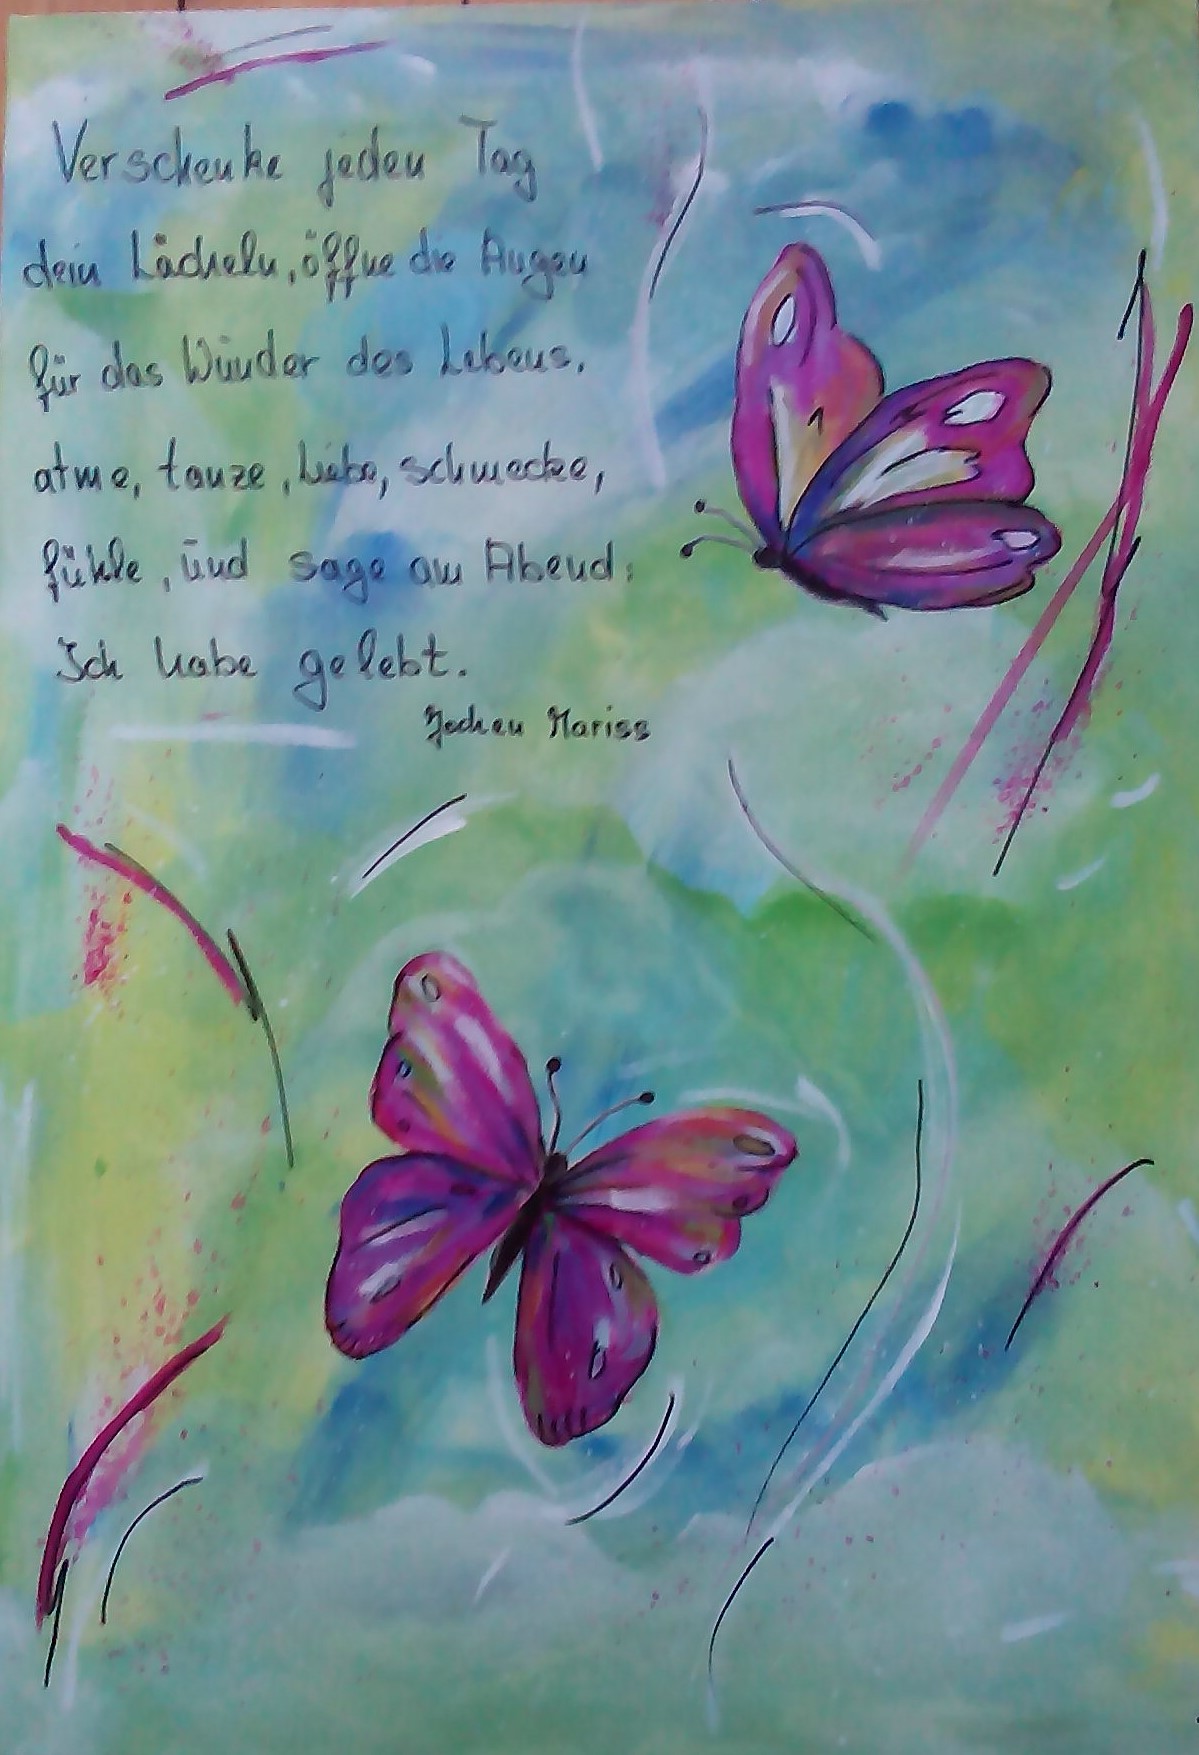 Verschenke jeden Tag
dein Lächeln, öffne die Augen
für das Wunder des Lebens,
atme, tanze, liebe, schmecke,
fühle, und sage am Abend:
Ich habe gelebt.
Jochen Mariss